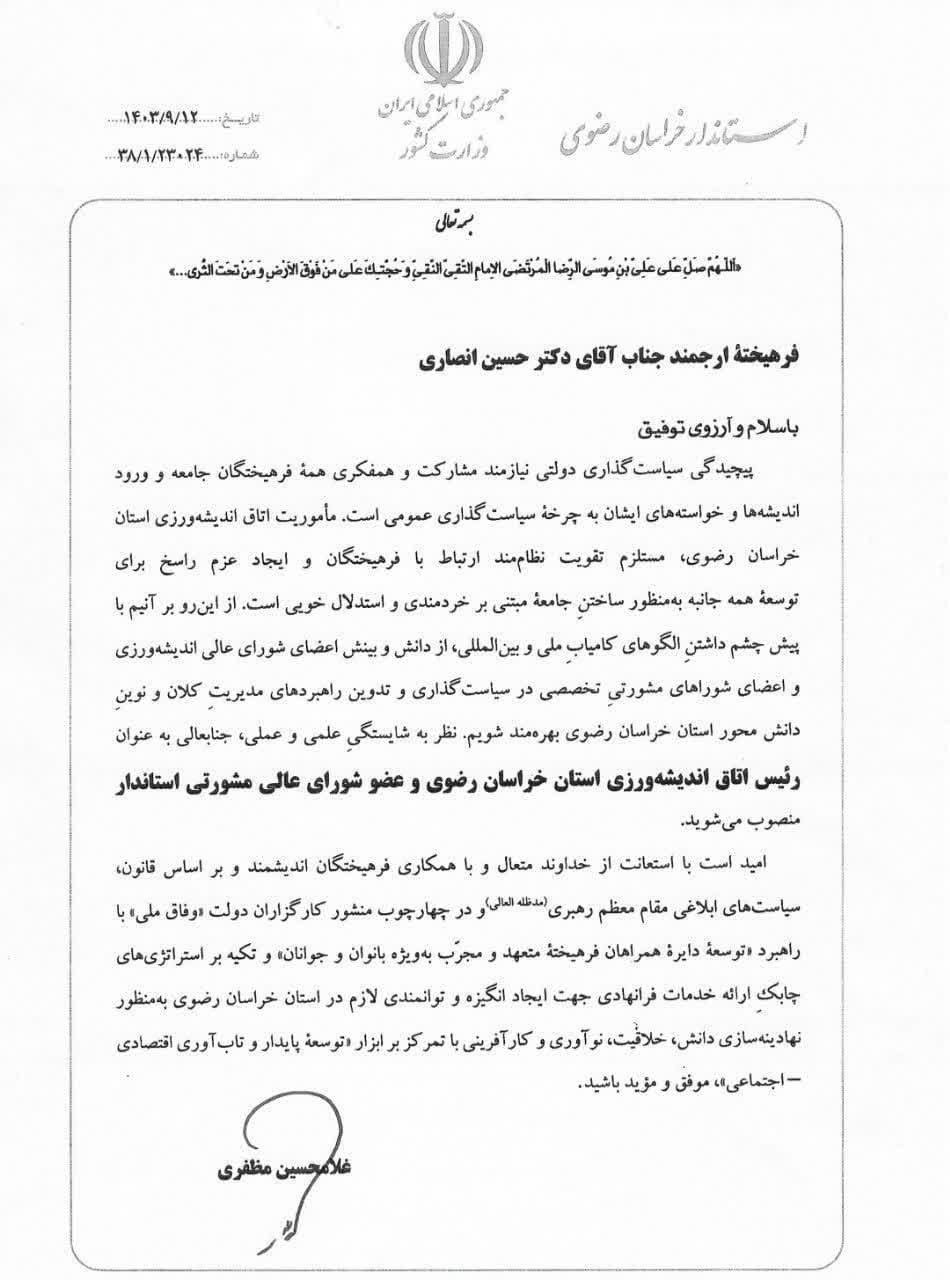 جمهوری اسلامی ایران
وزارت کشور
استاندار خراسان رضوی
تاریخ:.....۱۴۰۳/۹/۱۲....
شماره:....۳۸/۱/۲۳۰۲۴...
بسمه تعالی
«اَللّهُمَّ صَلِّ عَلی عَلِیِّ بْنِ مُوسَی الرِّضَا الْمُرْتَضَی الاِمامِ التَّقِیِّ النَّقِیِّ وَ حُجَّتِکَ عَلی مَنْ فَوْقَ الاَرْضِ وَ مَنْ تَحْتَ الثَّری...»
فرهیختهٔ ارجمند جناب آقای دکتر حسین انصاری
باسلام و آرزوی توفیق
پیچیدگی سیاست‌گذاری دولتی نیازمند مشارکت و همفکری همهٔ فرهیختگان جامعه و ورود
اندیشه‌ها و خواسته‌های ایشان به چرخهٔ سیاست‌گذاری عمومی است. مأموریت اتاق اندیشه‌ورزی استان
خراسان رضوی، مستلزم تقویت نظام‌مند ارتباط با فرهیختگان و ایجاد عزم راسخ برای
توسعهٔ همه جانبه به‌منظور ساختنِ جامعهٔ مبتنی بر خردمندی و استدلال خویی است. از این‌رو بر آنیم با
پیش چشم داشتنِ الگوهای کامیابِ ملی و بین‌المللی، از دانش و بینش اعضای شورای عالی اندیشه‌ورزی
و اعضای شوراهای مشورتیِ تخصصی در سیاست‌گذاری و تدوین راهبردهای مدیریتِ کلان و نوینِ
دانش محور استان خراسان رضوی بهره‌مند شویم. نظر به شایستگیِ علمی و عملی، جنابعالی به عنوان
رئیس اتاق اندیشه‌ورزی استان خراسان رضوی و عضو شورای عالی مشورتی استاندار
منصوب می‌شوید.
امید است با استعانت از خداوند متعال و با همکاری فرهیختگان اندیشمند و بر اساس قانون،
سیاست‌های ابلاغی مقام معظم رهبری(مدظله العالی)و در چهارچوب منشور کارگزاران دولت «وفاق ملی» با
راهبرد «توسعهٔ دایرهٔ همراهان فرهیختهٔ متعهد و مجرّب به‌ویژه بانوان و جوانان» و تکیه بر استراتژی‌های
چابکِ ارائه خدمات فرانهادی جهت ایجاد انگیزه و توانمندی لازم در استان خراسان رضوی به‌منظور
نهادینه‌سازی دانش، خلاقیت، نوآوری و کارآفرینی با تمرکز بر ابزار «توسعهٔ پایدار و تاب‌آوری اقتصادی
–اجتماعی»، موفق و مؤید باشید.
غلامحسین مظفری